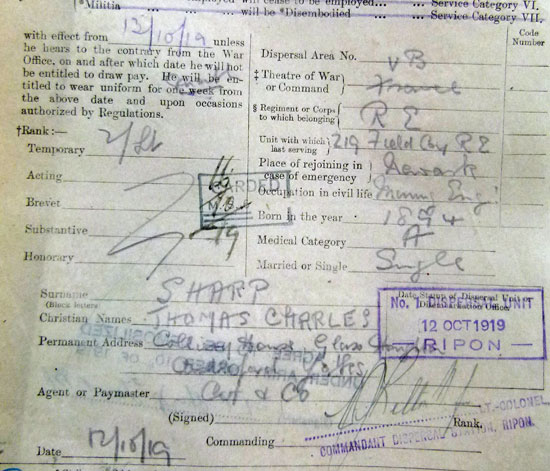 *Militia ... will cease to be employed... Service Category VI.
will be *Disembodied ... Service Category VII.
with effect from 13/10/19 unless
he hears to the contrary from the War
Office, on and after which date he will not
be entitled to draw pay. He will be en-
titled to wear uniform for one week from
the above date and upon occasions
authorized by Regulations.
Code
Number
Dispersal Area No. V B
‡ Theatre of War
or Command France
§ Regiment or Corps
to which belonging R E
Unit with which
last serving 219 Field Coy R E
Place of rejoining in
case of emergency Newark
Occupation in civil life Mining Eng
Born in the year 1894
Medical Category A
Married or Single Single
†Rank:—
Temporary 2/Lt
Acting
Brevet
Substantive
Honorary
Surname SHARP
(Block letters)
Christian Names THOMAS CHARLES
Permanent Address Colliery House Glass
Agent or Paymaster Cox & Co
Date Stamp of Dispersal Unit or
No. 1 DISPERSAL UNIT
12 OCT 1919
— RIPON —
(Signed)
Rank.
LT-COLONEL
Commanding
COMMANDANT DISPERSAL STATION, RIPON.
Date 12/10/19